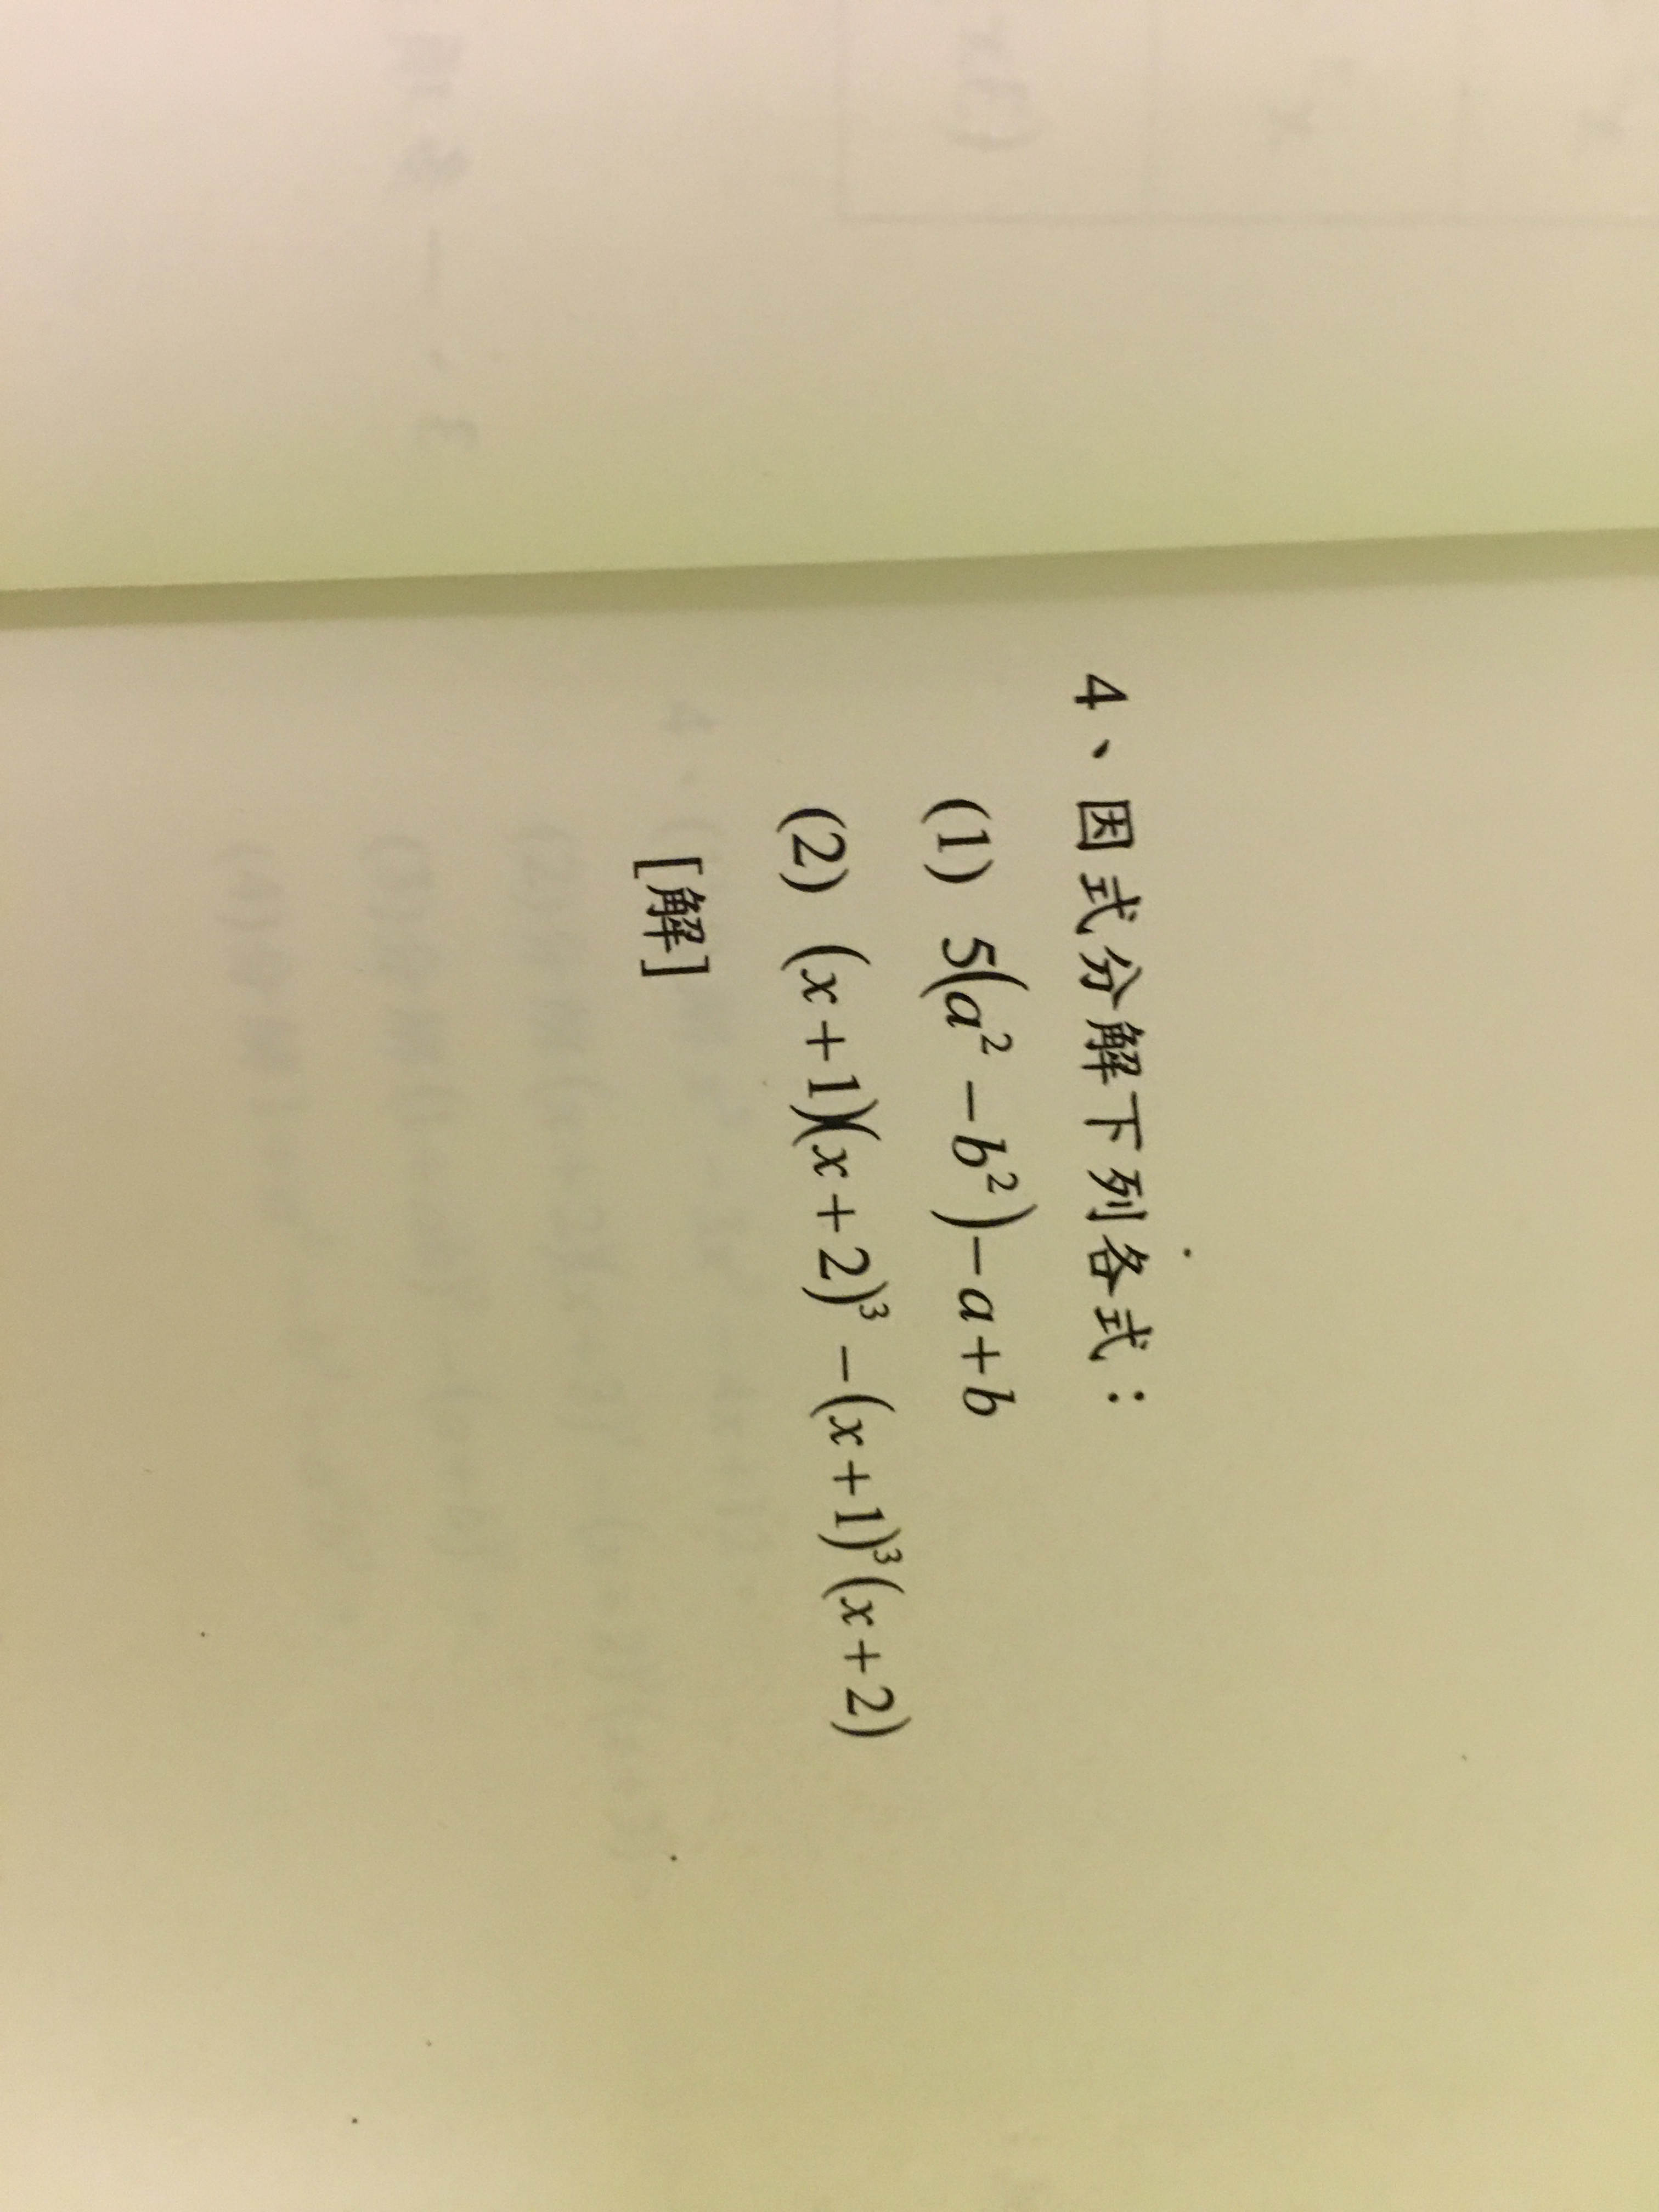 4、因式分解下列各式：
(1) 5(a² − b²) − a + b
(2) (x + 1)(x + 2)³ − (x + 1)³(x + 2)
[解]